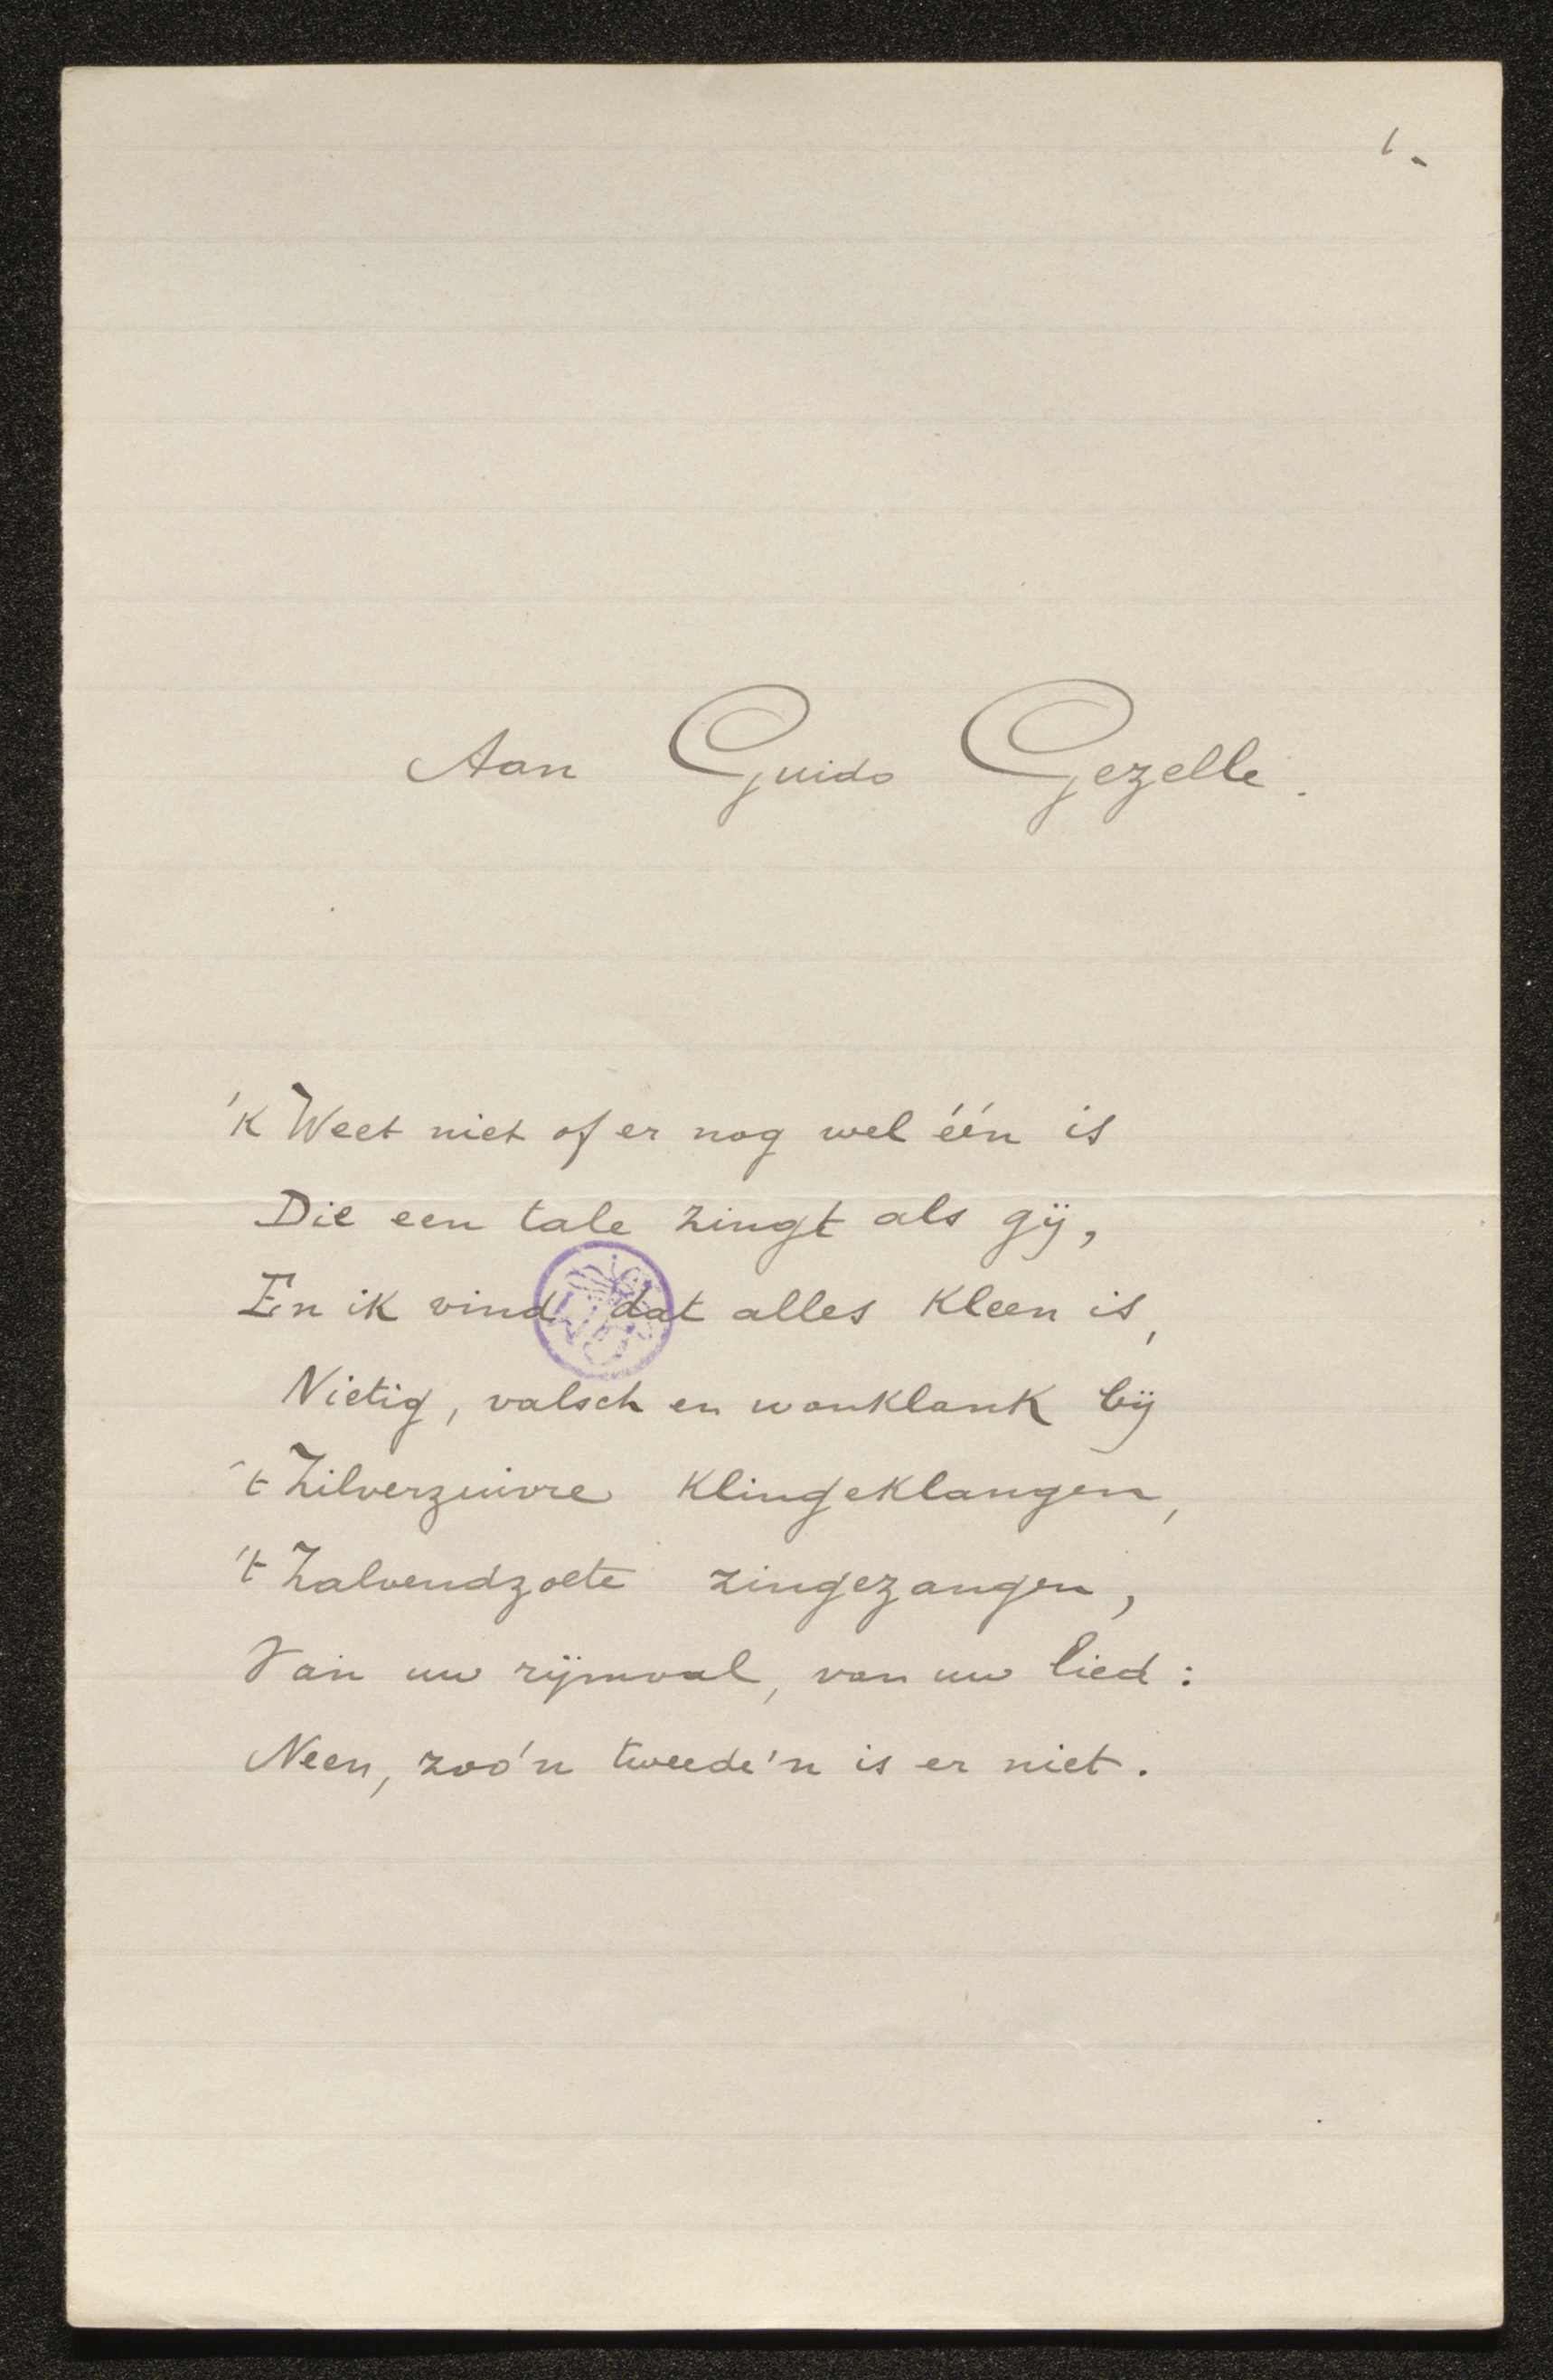 1.
Aan Guido Gezelle.
'k Weet niet of er nog wel één is
Die een tale zingt als gij,
En ik vind dat alles kleen is,
Nietig, valsch en wanklank bij
't Zilverzuivre klingeklangen,
't Zalvendzoete zingezangen,
Van uw rijmval, van uw lied:
Neen, zoo'n tweede'n is er niet.